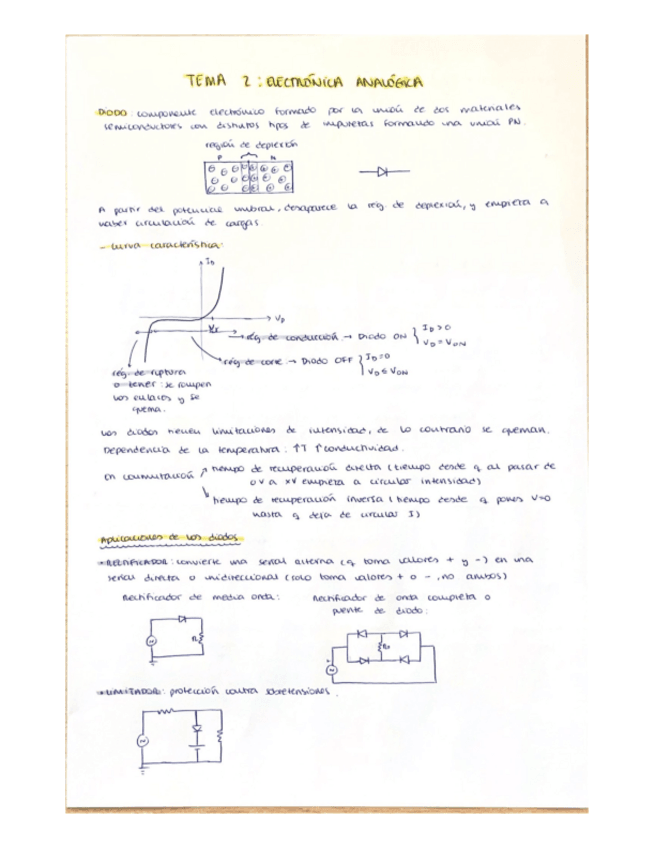 TEMA 2: ELECTRÓNICA ANALÓGICA
DIODO: componente electrónico formado por la unión de dos materiales
semiconductores con distintos tipos de impurezas formando una unión PN.
región de deplexión
P N
A partir del potencial umbral, desaparece la reg. de deplexión, y empieza a
haber circulación de cargas.
- Curva característica:
ID
VD
Vγ
reg. de conducción → Diodo ON { ID > 0
VD = VON
reg de corte → Diodo OFF } ID = 0
VD ≤ VON
reg. de ruptura
o zener: se rompen
los enlaces y se
quema.
Los diodos tienen limitaciones de intensidad, de lo contrario se queman.
Dependencia de la temperatura: ↑T ↑conductividad.
En conmutación ↗ tiempo de recuperación directa (tiempo desde q al pasar de
0V a XV empieza a circular intensidad)
↘ tiempo de recuperación inversa (tiempo desde q pones V=0
hasta q deja de circular I)
Aplicaciones de los diodos
* RECTIFICADOR: convierte una señal alterna (q toma valores + y -) en una
señal directa o unidireccional (solo toma valores + o -, no ambos)
Rectificador de media onda:
Rectificador de onda completa o
puente de diodo:
* LIMITADOR: protección contra sobretensiones.